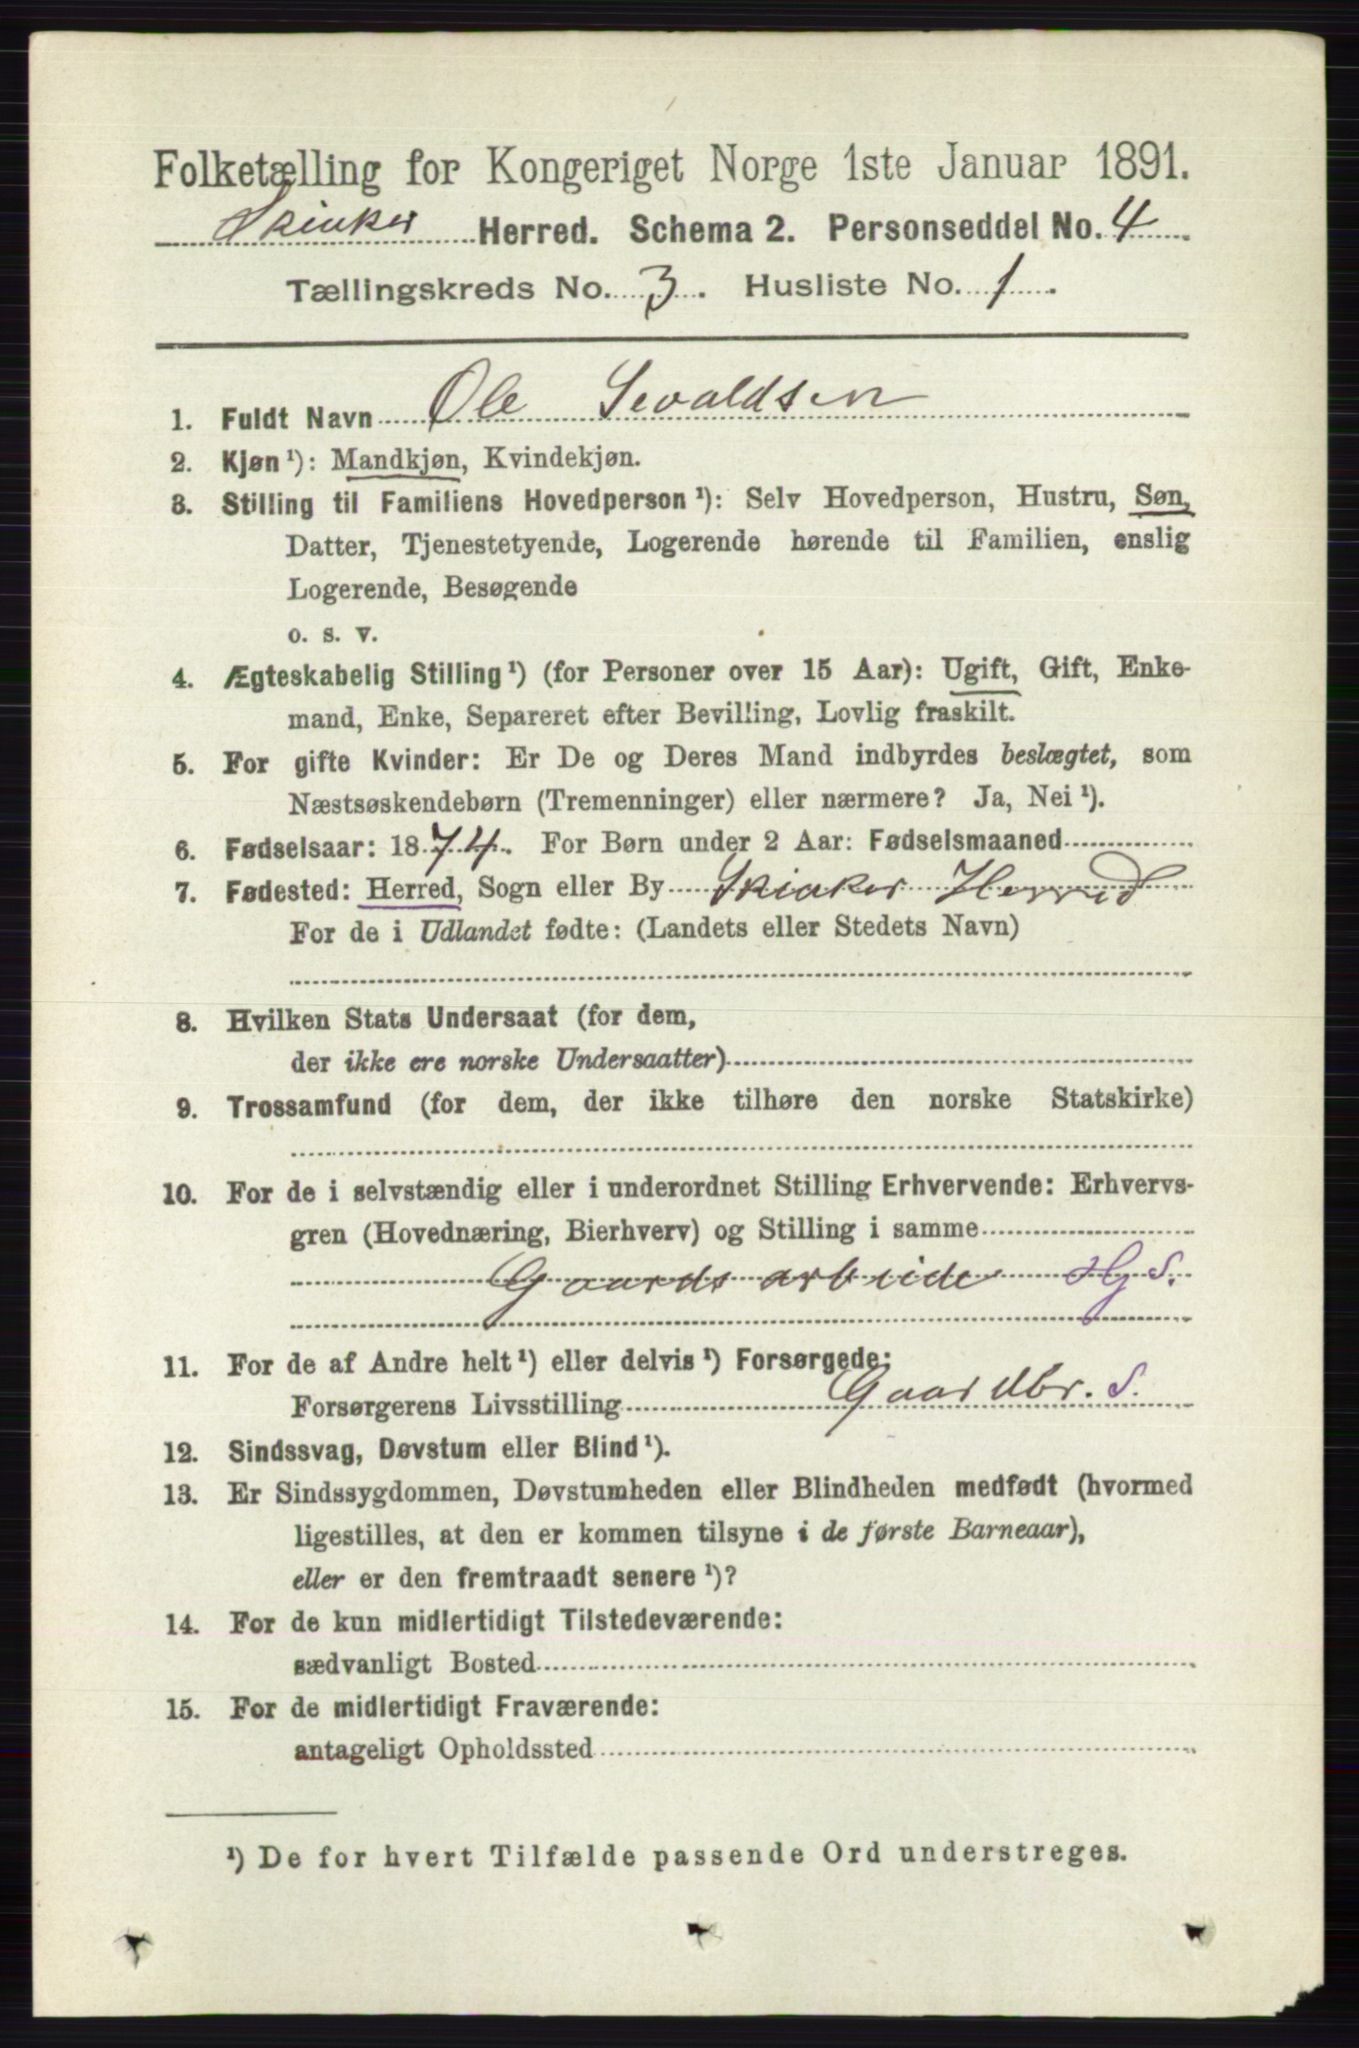 Folketælling for Kongeriget Norge 1ste Januar 1891.
Skiaker Herred. Schema 2. Personseddel No. 4
Tællingskreds No. 3. Husliste No. 1.
1. Fuldt Navn Ole Sevaldsen
2. Kjøn¹): Mandkjøn, Kvindekjøn.
3. Stilling til Familiens Hovedperson¹): Selv Hovedperson, Hustru, Søn,
Datter, Tjenestetyende, Logerende hørende til Familien, enslig
Logerende, Besøgende
o. s. v.
4. Ægteskabelig Stilling¹) (for Personer over 15 Aar): Ugift, Gift, Enke-
mand, Enke, Separeret efter Bevilling, Lovlig fraskilt.
5. For gifte Kvinder: Er De og Deres Mand indbyrdes beslægtet, som
Næstsøskendebørn (Tremenninger) eller nærmere? Ja, Nei¹).
6. Fødselsaar: 1874. For Børn under 2 Aar: Fødselsmaaned
7. Fødested: Herred, Sogn eller By Skiaker Herred
For de i Udlandet fødte: (Landets eller Stedets Navn)
8. Hvilken Stats Undersaat (for dem,
der ikke ere norske Undersaatter)
9. Trossamfund (for dem, der ikke tilhøre den norske Statskirke)
10. For de i selvstændig eller i underordnet Stilling Erhvervende: Erhvervs-
gren (Hovednæring, Bierhverv) og Stilling i samme
Gaardsarbeide Hj S.
11. For de af Andre helt¹) eller delvis¹) Forsørgede:
Forsørgerens Livsstilling Gaardbr. S.
12. Sindssvag, Døvstum eller Blind¹).
13. Er Sindssygdommen, Døvstumheden eller Blindheden medfødt (hvormed
ligestilles, at den er kommen tilsyne i de første Barneaar),
eller er den fremtraadt senere¹)?
14. For de kun midlertidigt Tilstedeværende:
sædvanligt Bosted
15. For de midlertidigt Fraværende:
antageligt Opholdssted
¹) De for hvert Tilfælde passende Ord understreges.